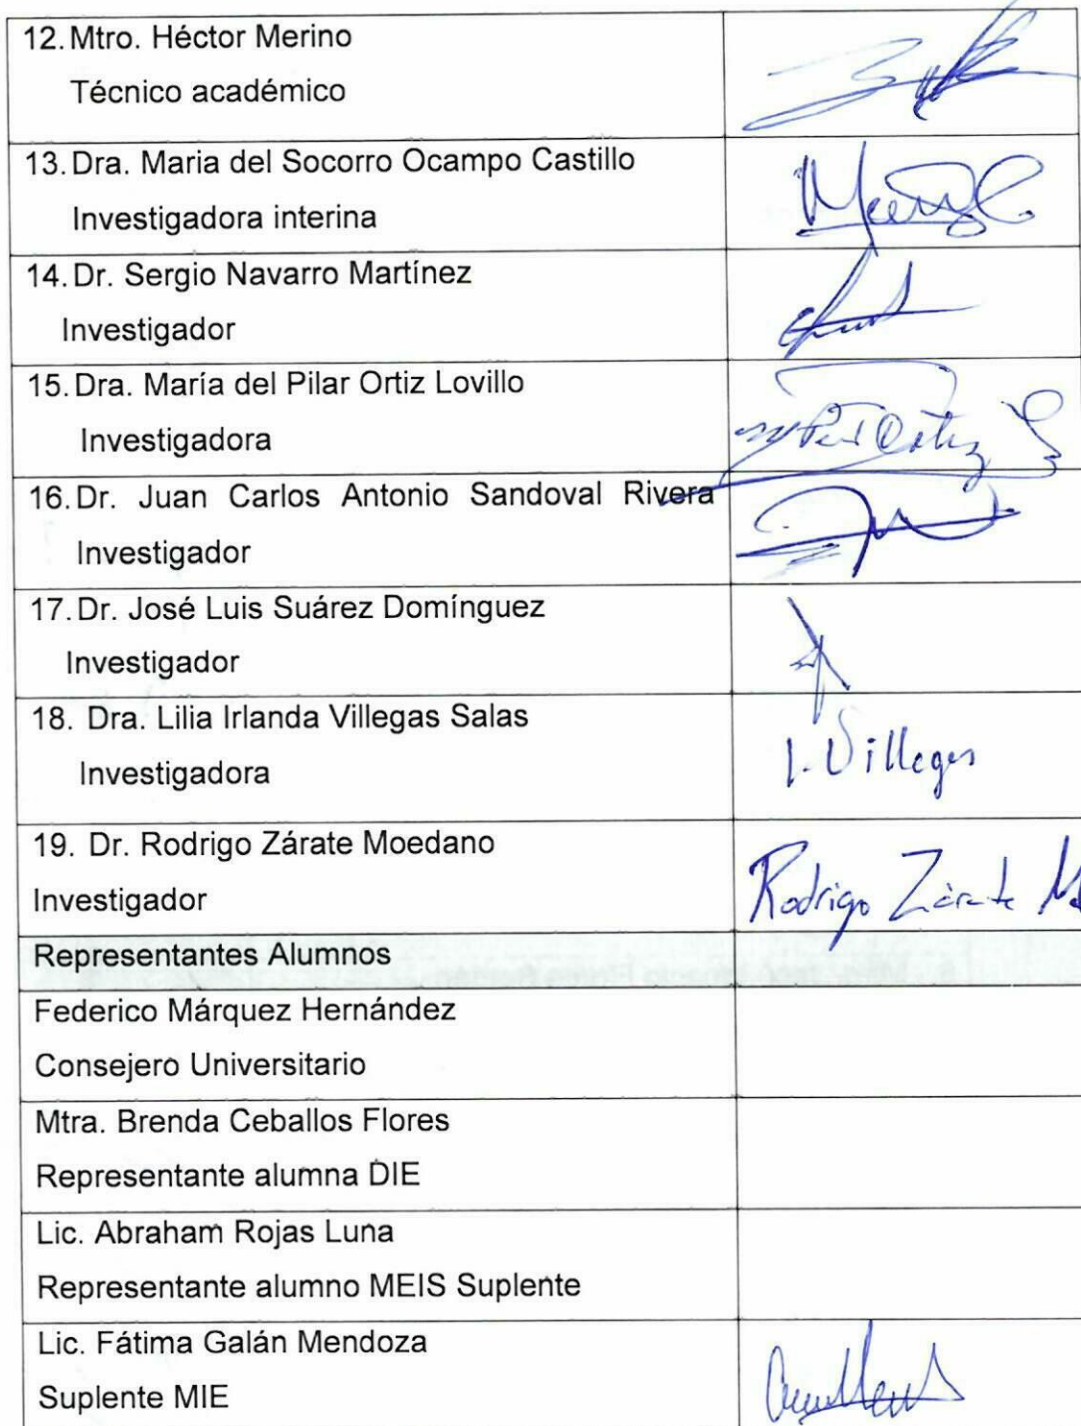 12. Mtro. Héctor Merino
Técnico académico
13. Dra. Maria del Socorro Ocampo Castillo
Investigadora interina
14. Dr. Sergio Navarro Martínez
Investigador
15. Dra. María del Pilar Ortiz Lovillo
Investigadora
16. Dr. Juan Carlos Antonio Sandoval Rivera
Investigador
17. Dr. José Luis Suárez Domínguez
Investigador
18. Dra. Lilia Irlanda Villegas Salas
Investigadora
I. Villegas
19. Dr. Rodrigo Zárate Moedano
Investigador
Rodrigo Zárate
Representantes Alumnos
Federico Márquez Hernández
Consejero Universitario
Mtra. Brenda Ceballos Flores
Representante alumna DIE
Lic. Abraham Rojas Luna
Representante alumno MEIS Suplente
Lic. Fátima Galán Mendoza
Suplente MIE